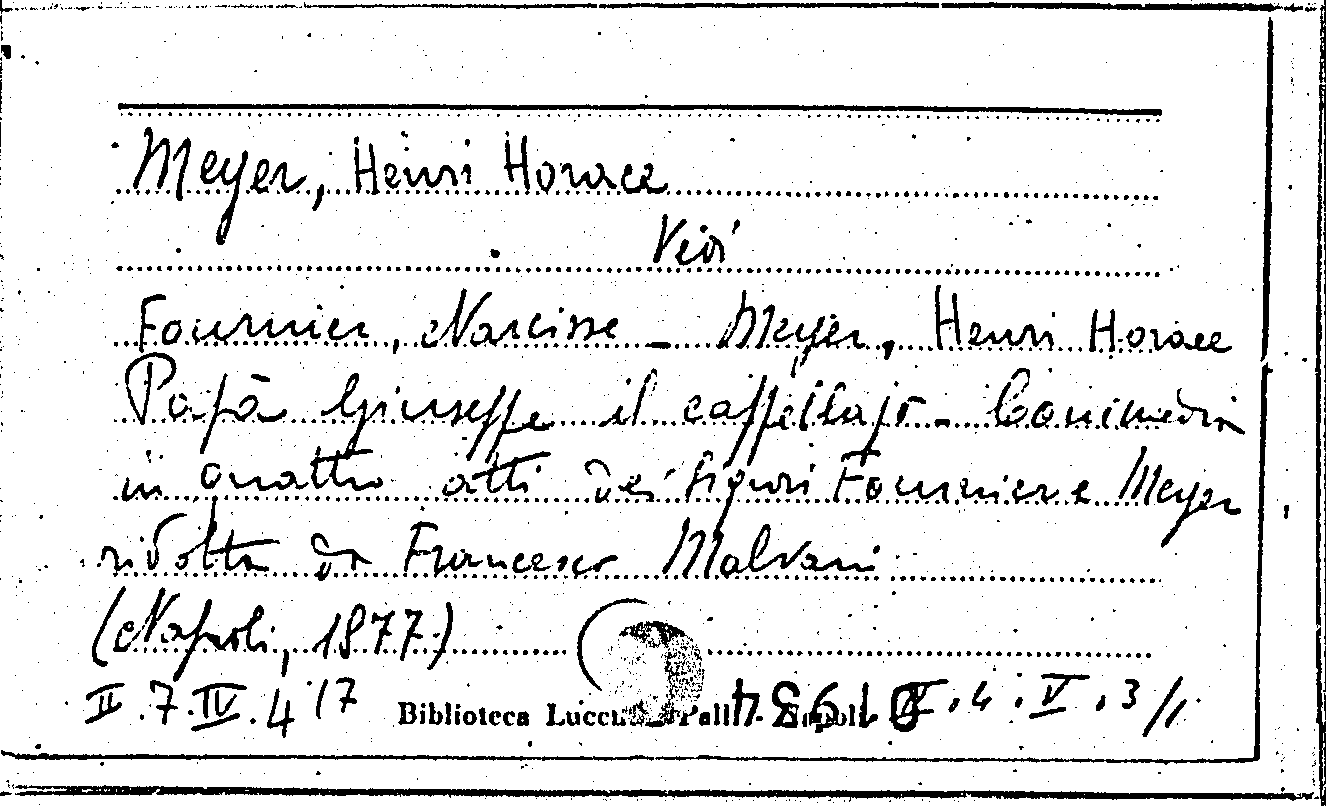 Meyer, Henri Horace
Vedi
Fournier, Narcisse - Meyer, Henri Horace
Papà Giuseppe il cappellajo - Commedia
in quattro atti dei signori Fournier e Meyer
ridotta da Francesco Malvani
(Napoli, 1877)
II.7.IV.4 17 Biblioteca Lucchesi Palli - Napoli .4.V.3/1